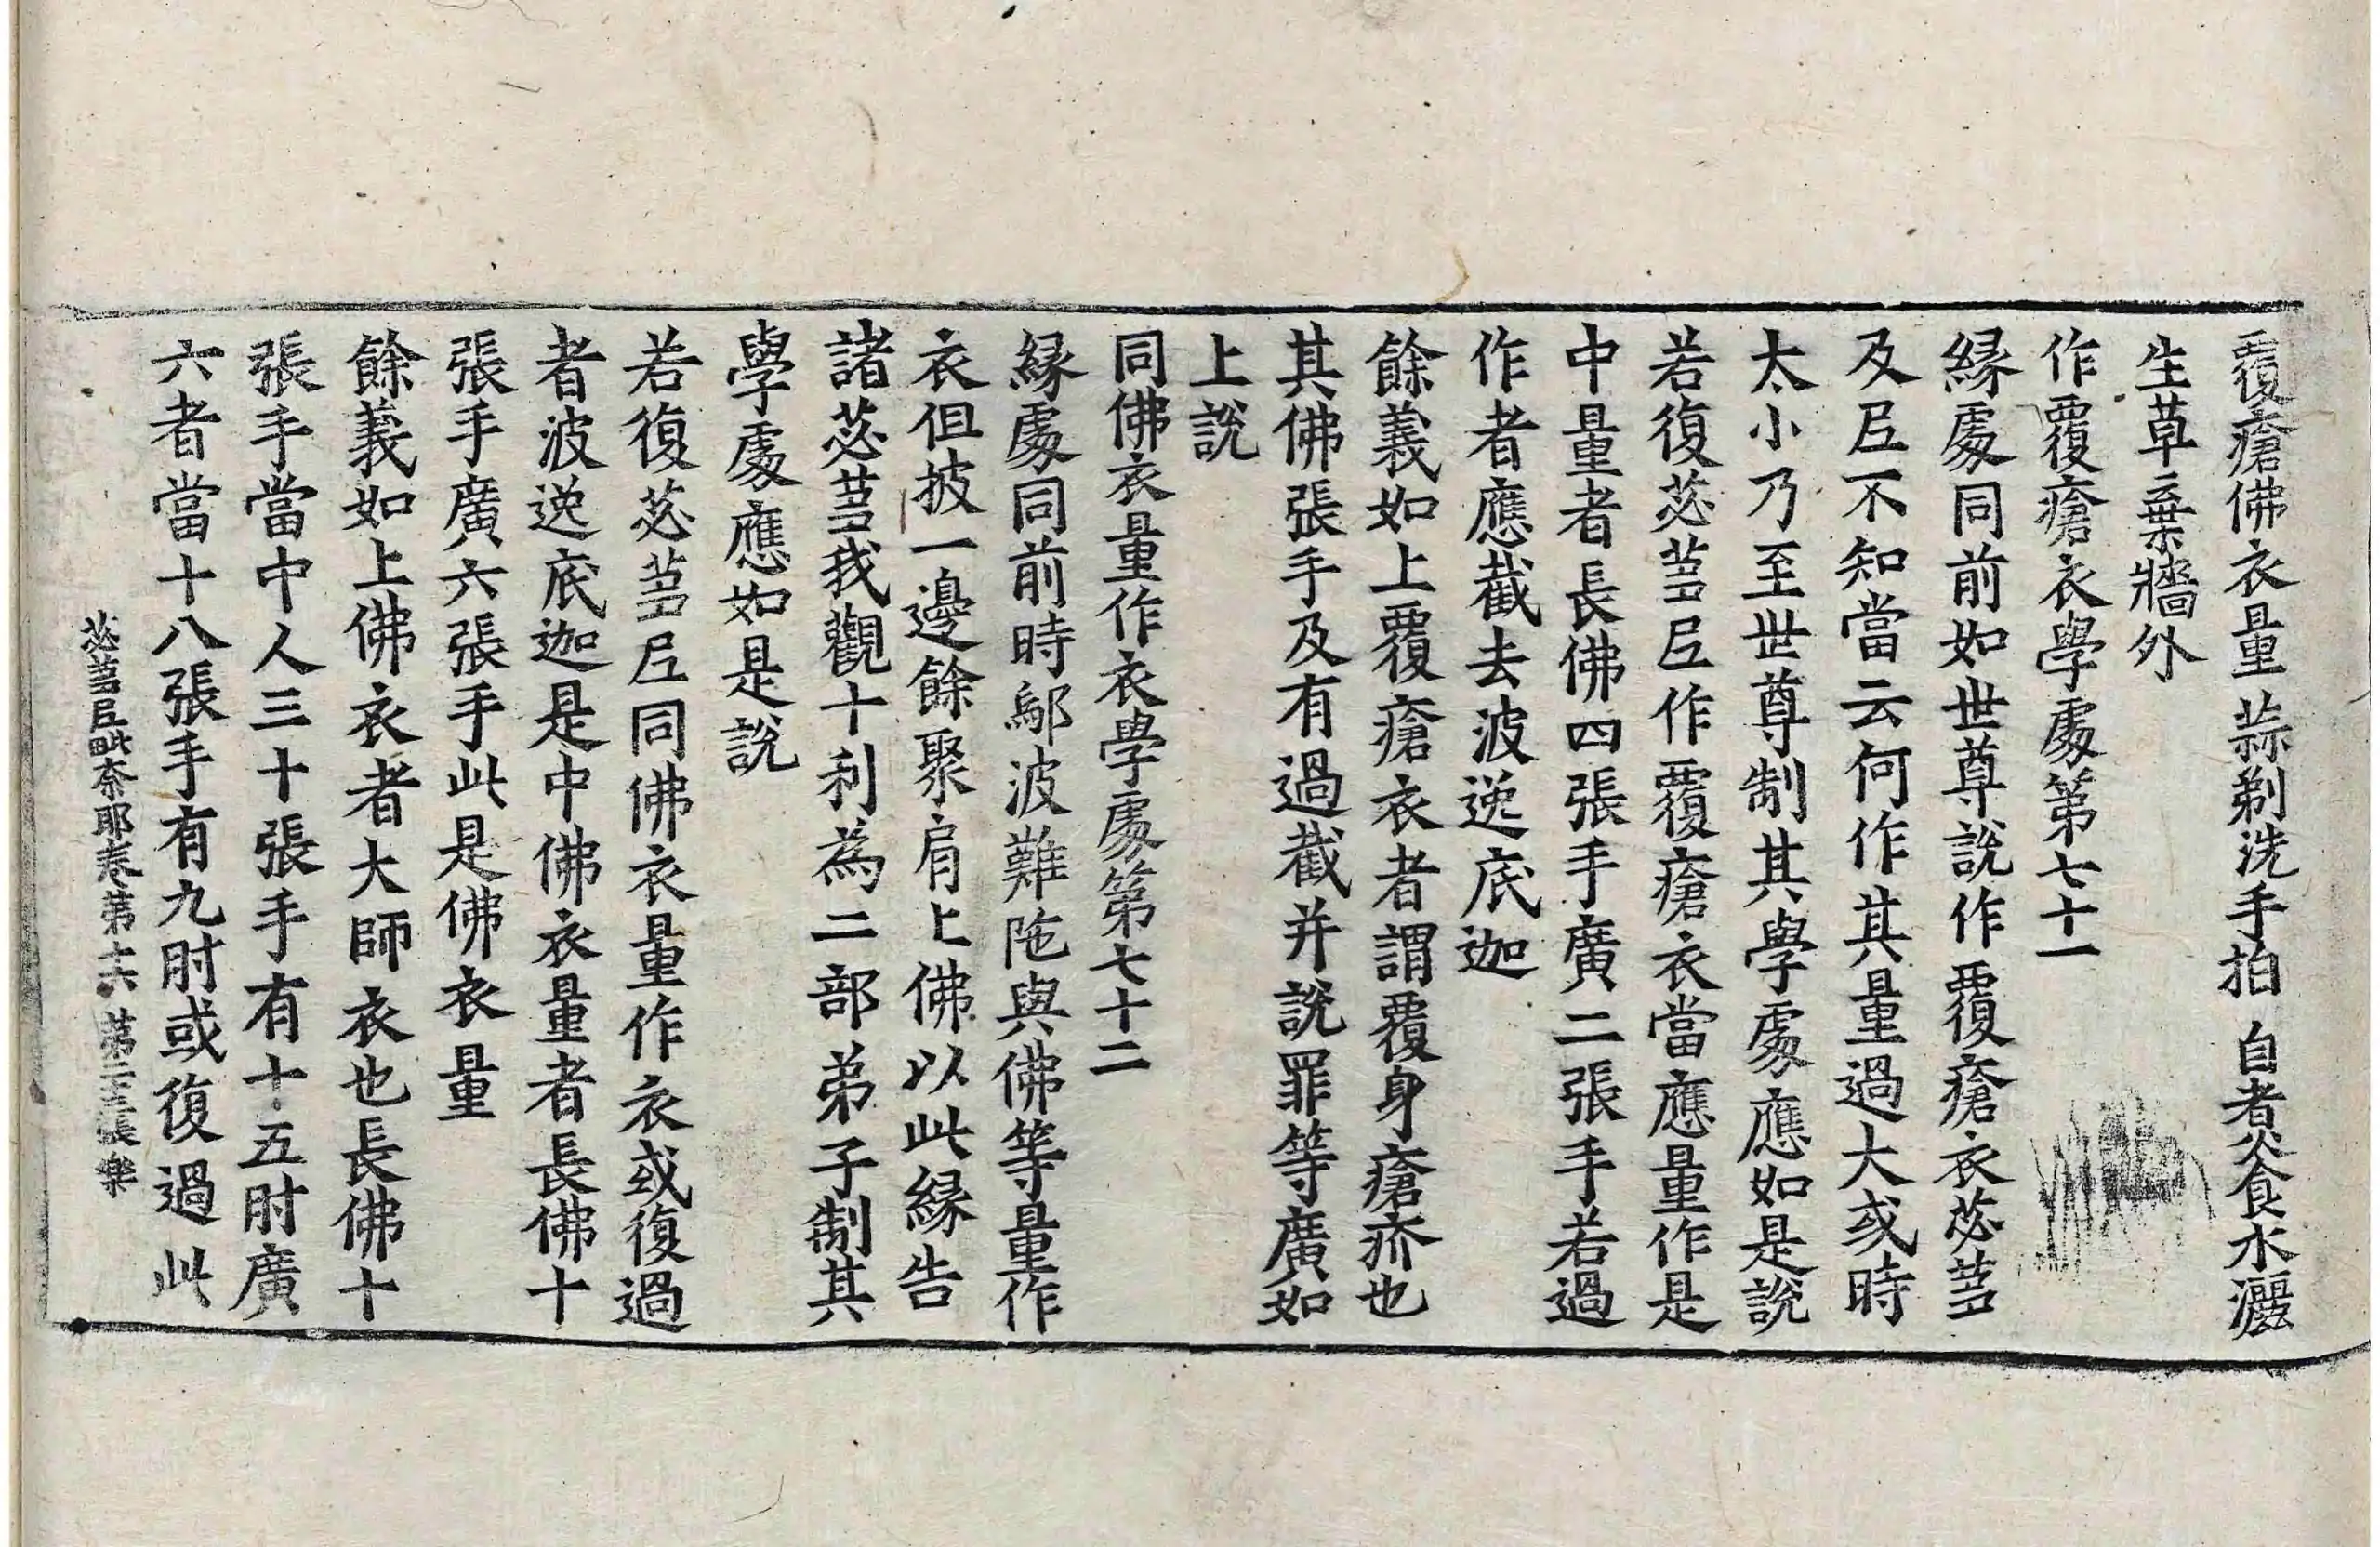 覆瘡佛衣量 蒜剃洗手拍 自煮食水灑
生草棄牆外
作覆瘡衣學處第七十一
緣處同前如世尊說作覆瘡衣苾芻
及尼不知當云何作其量過大或時
太小乃至世尊制其學處應如是說
若復苾芻尼作覆瘡衣當應量作是
中量者長佛四張手廣二張手若過
作者應截去波逸底迦
餘義如上覆瘡衣者謂覆身瘡疥也
其佛張手及有過截并說罪等廣如
上說
同佛衣量作衣學處第七十二
緣處同前時鄔波難陁與佛等量作
衣但披一邊餘聚肩上佛以此緣告
諸苾芻我觀十利為二部弟子制其
學處應如是說
若復苾芻尼同佛衣量作衣或復過
者波逸底迦是中佛衣量者長佛十
張手廣六張手此是佛衣量
餘義如上佛衣者大師衣也長佛十
張手當中人三十張手有十五肘廣
六者當十八張手有九肘或復過此
苾芻尼毗奈耶卷第十六 第二十三張 樂